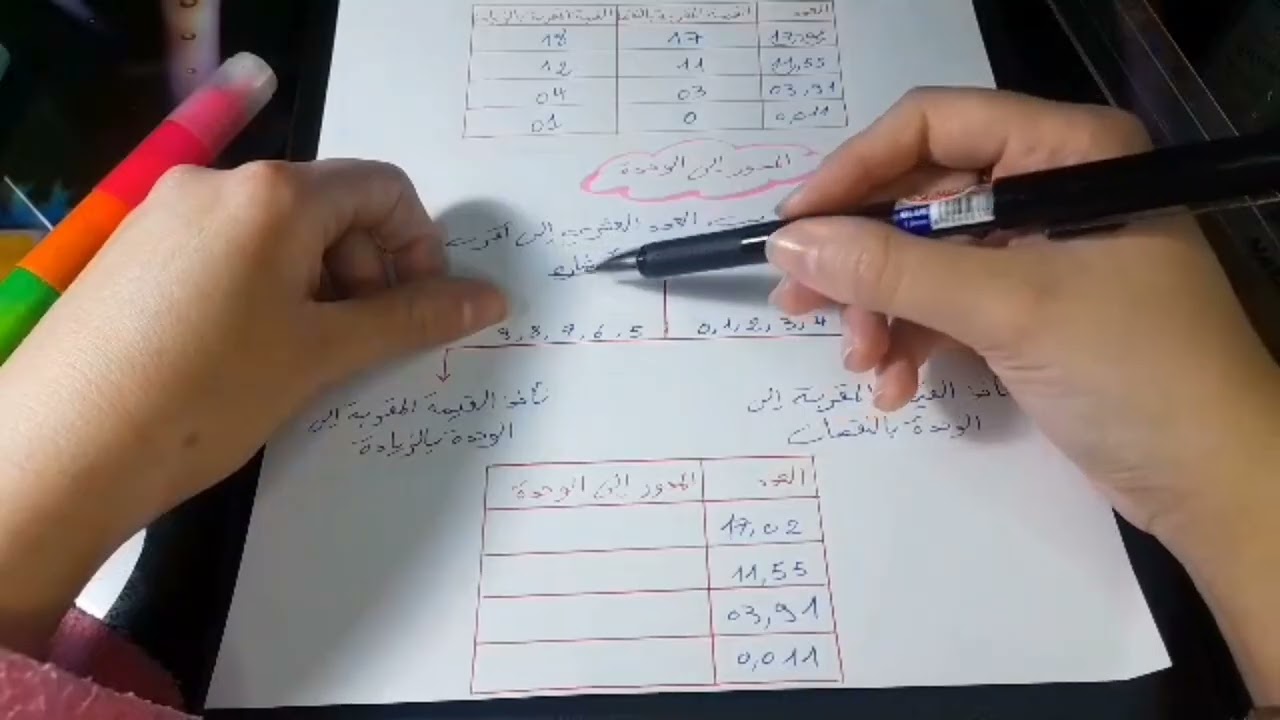 العدد القيمة المقربة بالنقصان القيمة المقربة بالزيادة
17 18
11,55 11 12
03,91 03 04
0,011 0 01
المدور إلى الوحدة
العدد العشري إلى أقرب
0,1,2,3,4 9,8,7,6,5
نأخذ القيمة المقربة إلى
الوحدة بالنقصان
نأخذ القيمة المقربة إلى
الوحدة بالزيادة
العدد المدور إلى الوحدة
17,02
11,55
03,91
0,011